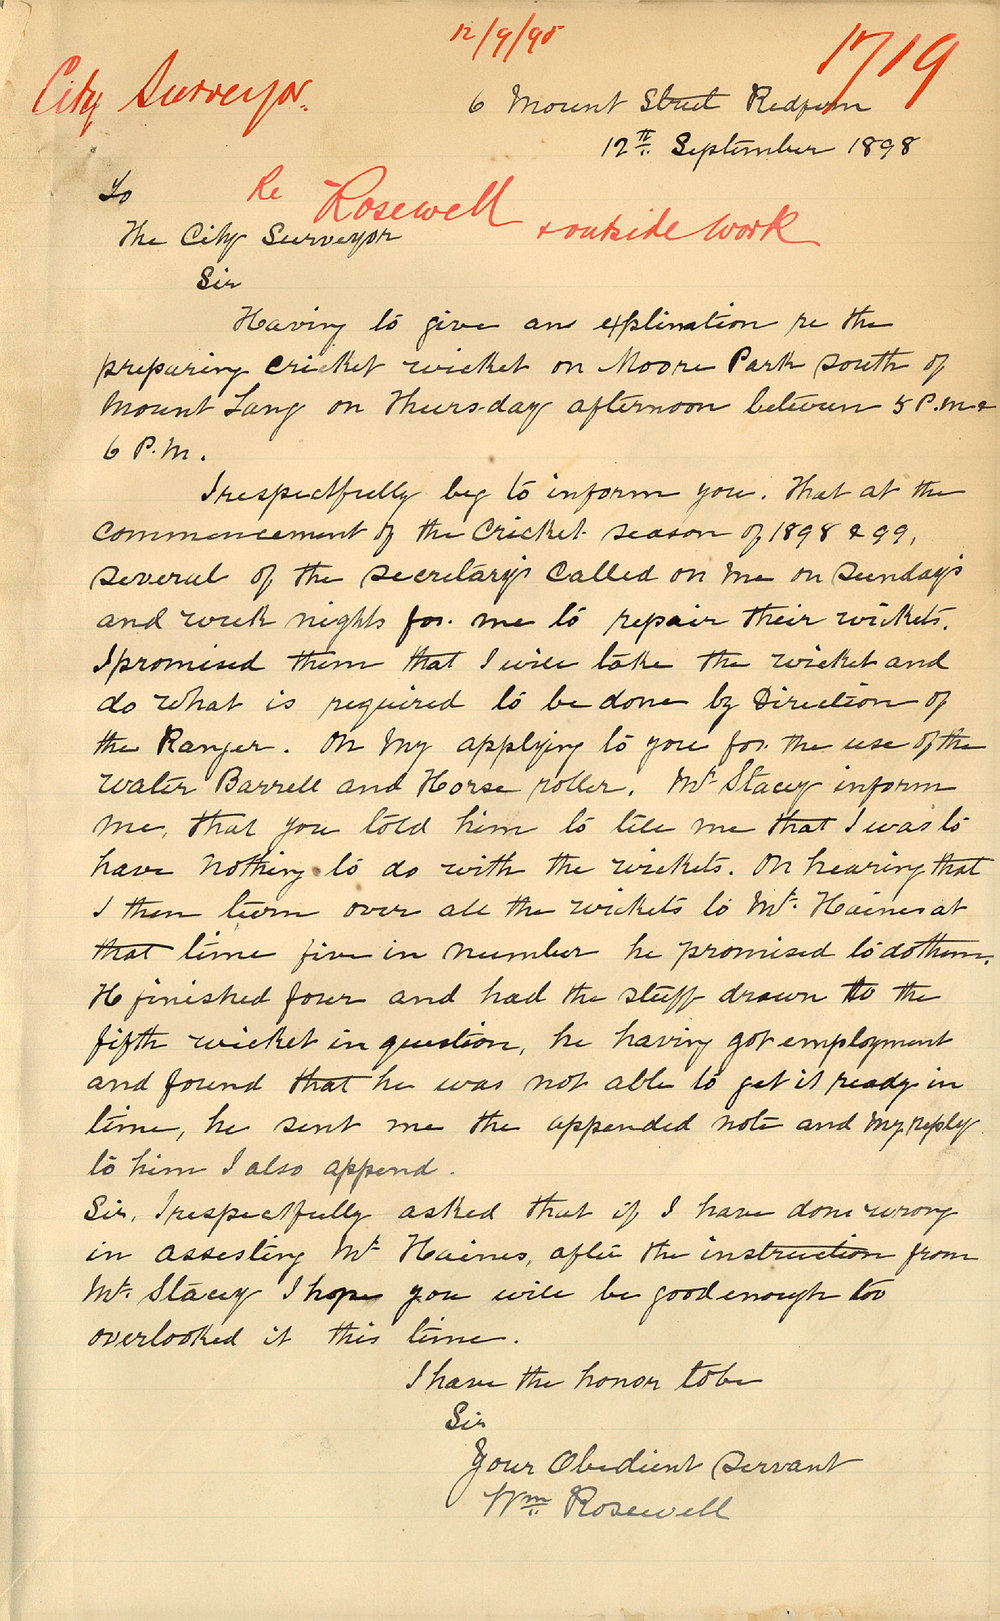 12/9/98
1719
City Surveyor.
6 Mount Street Redfern
12th. September 1898
To
Re Rosewell & outside work
The City Surveyor
Sir
Having to give an explination re the
preparing cricket wicket on Moore Park south of
Mount Lang on Thursday afternoon between 5 P.M &
6 P.M.
I respectfully beg to inform you. That at the
commencement of the Cricket season of 1898 & 99,
several of the secretary's called on me on Sunday's
and week nights for me to repair their wickets.
I promised them that I will take the wicket and
do what is required to be done by Direction of
the Ranger. On My applying to you for the use of the
water Barrell and Horse roller. Mr. Stacey inform
me, that you told him to tell me that I was to
have nothing to do with the wickets. On hearing that
I then turn over all the wickets to Mr. Haines at
that time five in number he promised to do them.
H finished four and had the stuff drawn to the
fifth wicket in question, he having got employment
and found that he was not able to get it ready in
time, he sent me the appended note and My reply
to him I also append.
Sir, I respectfully asked that if I have done wrong
in assesting Mr Haines, after the instruction from
Mr. Stacey I hope you will be good enough too
overlooked it this time.
I have the honor to be
Sir
Your Obedient Servant
Wm. Rosewell